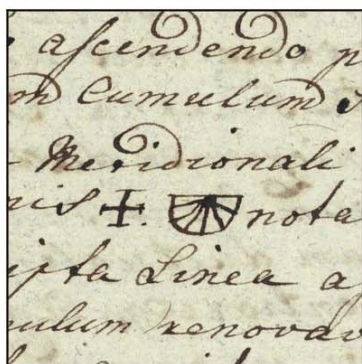 ascendendo p
m Cumulum
Meridionali
nis ‡. nota
ipta Linea a
ulum renova